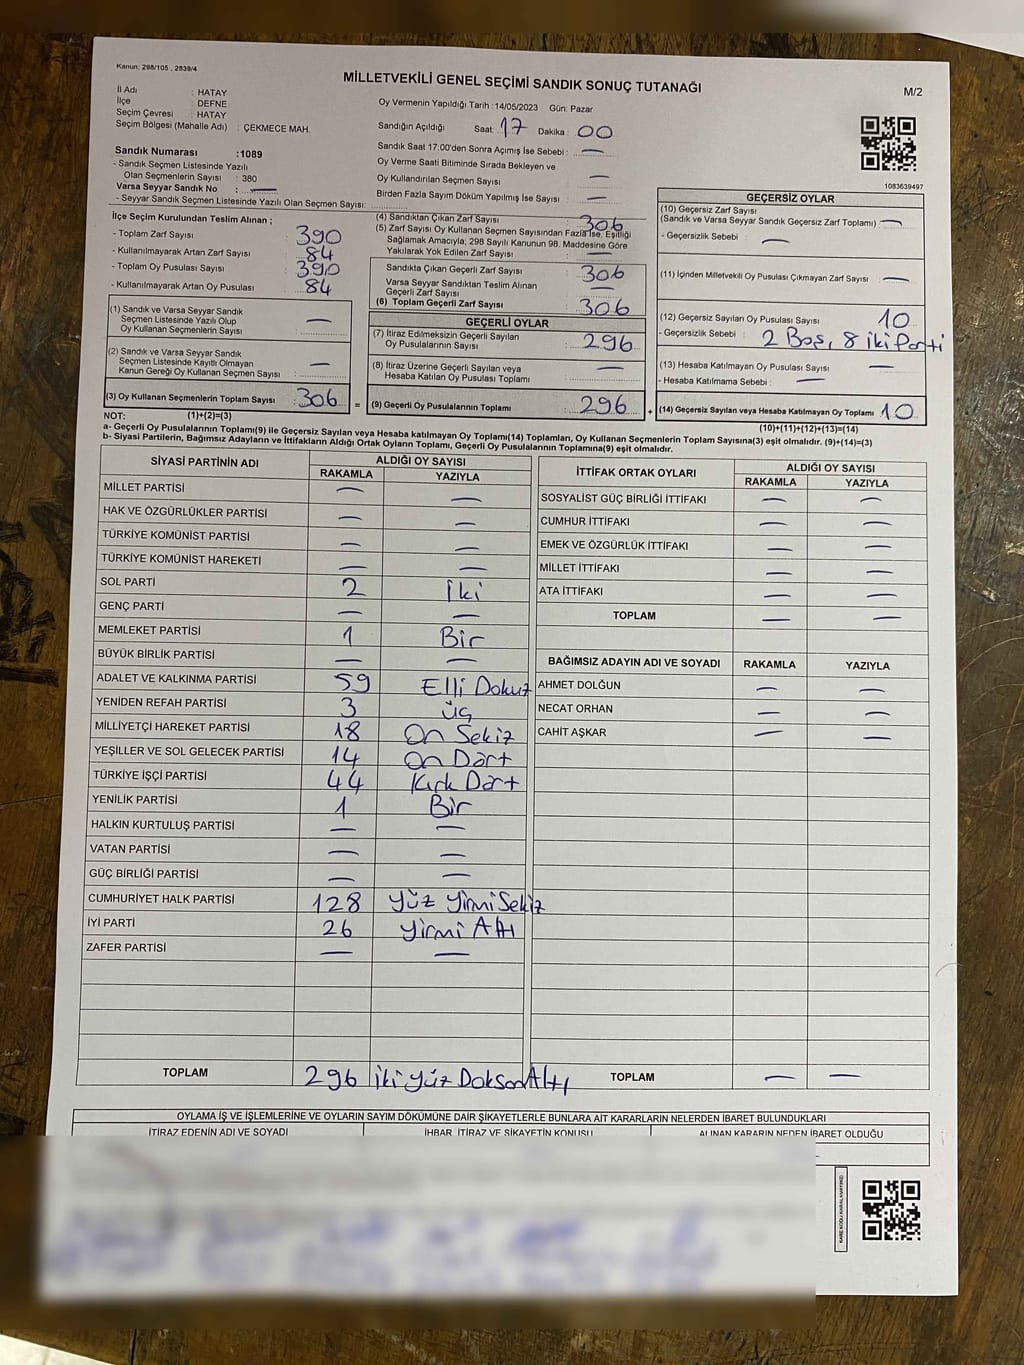 Kanun: 298/105 , 2839/4
MİLLETVEKİLİ GENEL SEÇİMİ SANDIK SONUÇ TUTANAĞI
M/2
İl Adı : HATAY
İlçe : DEFNE
Seçim Çevresi : HATAY
Seçim Bölgesi (Mahalle Adı) : ÇEKMECE MAH.
Oy Vermenin Yapıldığı Tarih :14/05/2023 Gün: Pazar
Sandığın Açıldığı Saat: 17 Dakika : 00
Sandık Saat 17:00'den Sonra Açımış İse Sebebi : —
Oy Verme Saati Bitiminde Sırada Bekleyen ve
Oy Kullandırılan Seçmen Sayısı : —
Birden Fazla Sayım Döküm Yapılmış İse Sayısı : —
Sandık Numarası :1089
- Sandık Seçmen Listesinde Yazılı
Olan Seçmenlerin Sayısı : 380
Varsa Seyyar Sandık No : —
- Seyyar Sandık Seçmen Listesinde Yazılı Olan Seçmen Sayısı:
1083639497
İlçe Seçim Kurulundan Teslim Alınan ;
- Toplam Zarf Sayısı 390
- Kullanılmayarak Artan Zarf Sayısı 84
- Toplam Oy Pusulası Sayısı 390
- Kullanılmayarak Artan Oy Pusulası 84
(1) Sandık ve Varsa Seyyar Sandık
Seçmen Listesinde Yazılı Olup
Oy Kullanan Seçmenlerin Sayısı —
(2) Sandık ve Varsa Seyyar Sandık
Seçmen Listesinde Kayıtlı Olmayan
Kanun Gereği Oy Kullanan Seçmen Sayısı —
(3) Oy Kullanan Seçmenlerin Toplam Sayısı 306 =
(1)+(2)=(3)
(4) Sandıktan Çıkan Zarf Sayısı 306
(5) Zarf Sayısı Oy Kullanan Seçmen Sayısından Fazla İse, Eşitliği
Sağlamak Amacıyla; 298 Sayılı Kanunun 98. Maddesine Göre
Yakılarak Yok Edilen Zarf Sayısı —
Sandıkta Çıkan Geçerli Zarf Sayısı 306
Varsa Seyyar Sandıktan Teslim Alınan
Geçerli Zarf Sayısı —
(6) Toplam Geçerli Zarf Sayısı 306
GEÇERLİ OYLAR
(7) İtiraz Edilmeksizin Geçerli Sayılan
Oy Pusulalarının Sayısı 296
(8) İtiraz Üzerine Geçerli Sayılan veya
Hesaba Katılan Oy Pusulası Toplamı —
(9) Geçerli Oy Pusulalarının Toplamı 296 +
GEÇERSİZ OYLAR
(10) Geçersiz Zarf Sayısı
(Sandık ve Varsa Seyyar Sandık Geçersiz Zarf Toplamı) —
- Geçersizlik Sebebi : —
(11) İçinden Milletvekili Oy Pusulası Çıkmayan Zarf Sayısı —
(12) Geçersiz Sayılan Oy Pusulası Sayısı 10
- Geçersizlik Sebebi : 2 Boş, 8 iki Parti
(13) Hesaba Katılmayan Oy Pusulası Sayısı —
- Hesaba Katılmama Sebebi : —
(14) Geçersiz Sayılan veya Hesaba Katılmayan Oy Toplamı 10
(10)+(11)+(12)+(13)=(14)
NOT:
a- Geçerli Oy Pusulalarının Toplamı(9) ile Geçersiz Sayılan veya Hesaba katılmayan Oy Toplamı(14) Toplamları, Oy Kullanan Seçmenlerin Toplam Sayısına(3) eşit olmalıdır. (9)+(14)=(3)
b- Siyasi Partilerin, Bağımsız Adayların ve İttifakların Aldığı Ortak Oyların Toplamı, Geçerli Oy Pusulalarının Toplamına(9) eşit olmalıdır.
SİYASİ PARTİNİN ADI ALDIĞI OY SAYISI
RAKAMLA YAZIYLA
MİLLET PARTİSİ — —
HAK VE ÖZGÜRLÜKLER PARTİSİ — —
TÜRKİYE KOMÜNİST PARTİSİ — —
TÜRKİYE KOMÜNİST HAREKETİ — —
SOL PARTİ 2 İki
GENÇ PARTİ — —
MEMLEKET PARTİSİ 1 Bir
BÜYÜK BİRLİK PARTİSİ — —
ADALET VE KALKINMA PARTİSİ 59 Elli Dokuz
YENİDEN REFAH PARTİSİ 3 üç
MİLLİYETÇİ HAREKET PARTİSİ 18 On Sekiz
YEŞİLLER VE SOL GELECEK PARTİSİ 14 On Dört
TÜRKİYE İŞÇİ PARTİSİ 44 Kırk Dört
YENİLİK PARTİSİ 1 Bir
HALKIN KURTULUŞ PARTİSİ — —
VATAN PARTİSİ — —
GÜÇ BİRLİĞİ PARTİSİ — —
CUMHURİYET HALK PARTİSİ 128 Yüz YirmiSekiz
İYİ PARTİ 26 Yirmi Altı
ZAFER PARTİSİ — —
TOPLAM 296 İkiYüz DoksanAltı
İTTİFAK ORTAK OYLARI ALDIĞI OY SAYISI
RAKAMLA YAZIYLA
SOSYALİST GÜÇ BİRLİĞİ İTTİFAKI — —
CUMHUR İTTİFAKI — —
EMEK VE ÖZGÜRLÜK İTTİFAKI — —
MİLLET İTTİFAKI — —
ATA İTTİFAKI — —
TOPLAM — —
BAĞIMSIZ ADAYIN ADI VE SOYADI RAKAMLA YAZIYLA
AHMET DOLĞUN — —
NECAT ORHAN — —
CAHİT AŞKAR — —
TOPLAM — —
OYLAMA İŞ VE İŞLEMLERİNE VE OYLARIN SAYIM DÖKÜMÜNE DAİR ŞİKAYETLERLE BUNLARA AİT KARARLARIN NELERDEN İBARET BULUNDUKLARI
İTİRAZ EDENİN ADI VE SOYADI İHBAR, İTİRAZ VE ŞİKAYETİN KONUSU ALINAN KARARIN NEDEN İBARET OLDUĞU